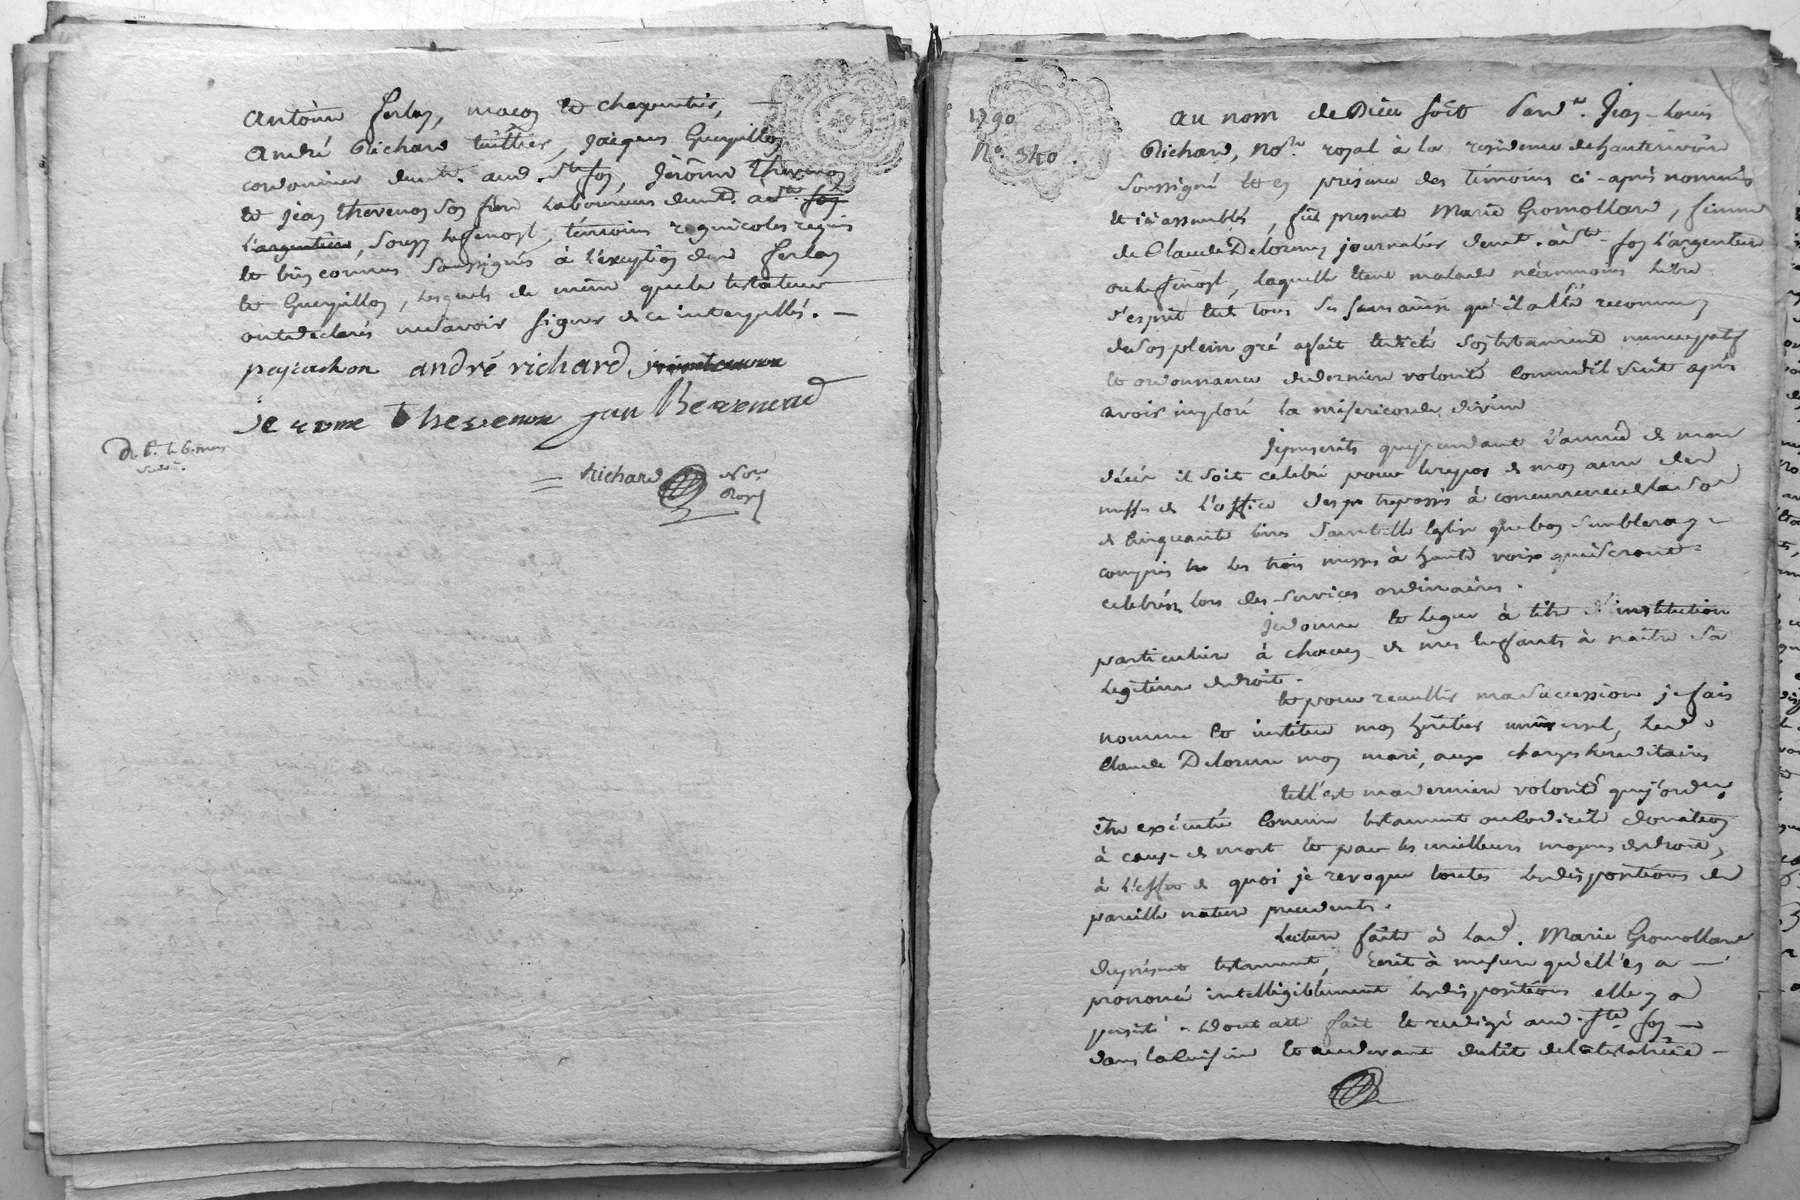 Antoine ferlay, maçon et charpentier,
André Richard tuillier, Jacques Guerpillon
cordonnier demt. aud. Ste foy, Jérôme thevenon
et jean thevenon son frere laboureurs demt. ad. Ste foy
l'argentiere, témoins regnicoles requis
et bien connus soussignés à l'exception dud ferlay
et Guerpillon, lesquels de même que le testateur
ont declarés ne savoir signer de ce interpellés. —
peyrachon andré richard
jerome thevenon jan thevenond
Richard Nore
Royal
1790
No. 340.
Au nom de Dieu soit Pardt. Jean-Louis
Richard, Nore. royal à la residence de hauterivoire
soussigné et en présence des témoins ci-après nommés
et ici assemblés, fut presente Marie Gromolland, femme
de Claude Delorme, journalier demt. à Ste. foy l'argentiere
laquelle étant malade néanmoins libre
d'esprit et de tous ses sens ainsi qu'il a été reconnu,
de son plein gré a fait et dicté son testament nuncupatif
et ordonnance de derniere volonté comme s'il suit après
avoir imploré la misericorde divine
Je prescrits que pendant l'année de mon
décès il soit célébré pour le repos de mon ame des
messes de l'office des trepassés à concurrence de la so
de cinquante livres dans telle Eglise que bon semblera y
compris les trois messes à haute voix qui seront
celebrées lors des services ordinaires.
Je donne et legue à titre d'institution
particuliere à chacun de mes enfants à naître sa
legitime de droit.
et pour recueillir ma succession je fais
nomme et institue mon héritier universel, led.
Claude Delorme mon mari, aux charges hereditaires
telle est ma derniere volonté que j'ordne.
être exécutée comme testament ou codicile donation
à cause de mort et par les meilleurs moyens de droit,
à l'effet de quoi je revoque toutes les dispositions de
pareille nature precedents.
Lecture faite à lad. Marie Gromolland
du present testament, Ecrit à mesure qu'elle en a —
prononcé intelligiblement les dispositions elle y a
persisté. Dont acte fait et redigé aud. Ste foy —
dans la cuisine et au devant du lit de la testatrice —